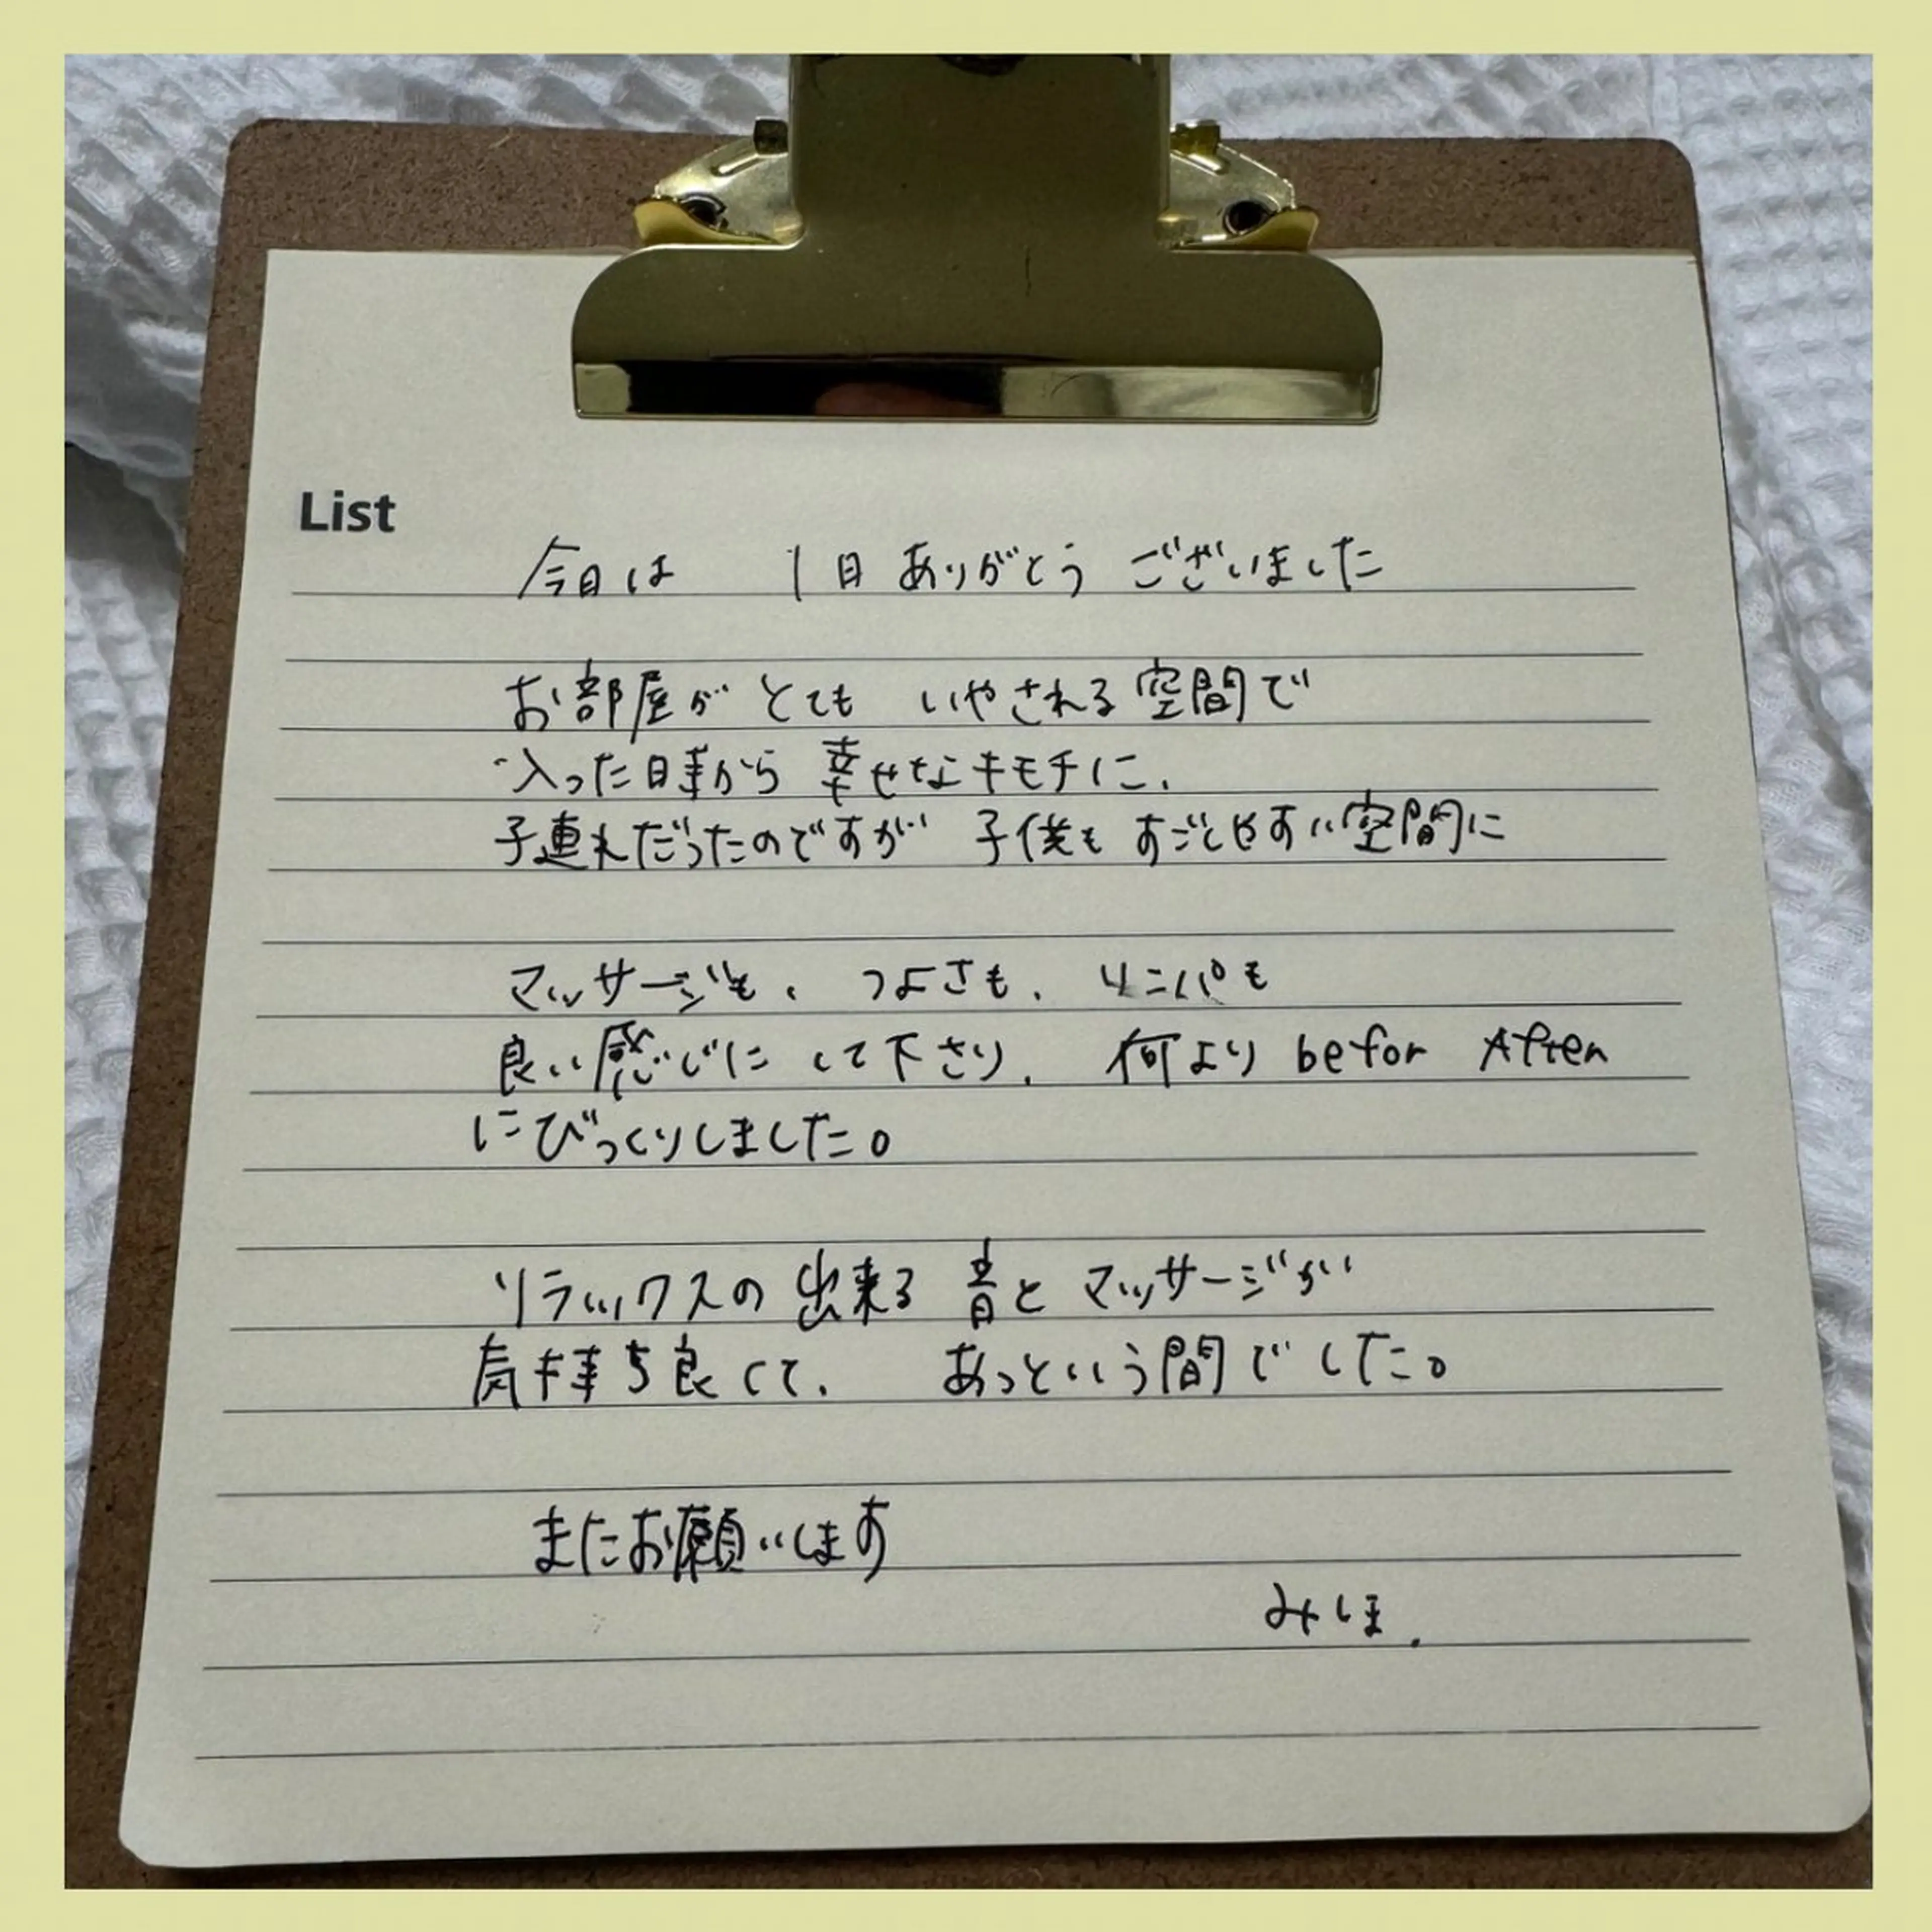 List
今日は 1日 ありがとう ございました
お部屋が とても いやされる空間で
入った時から 幸せなキモチに、
子連れだったのですが 子供も すごしやすい空間に
マッサージも、つよさも、リンパも
良い感じに して下さり、何より befor After
にびっくりしました。
リラックスの出来る 音と マッサージが
気持ち良くて、あっという間でした。
またお願いします
みほ.